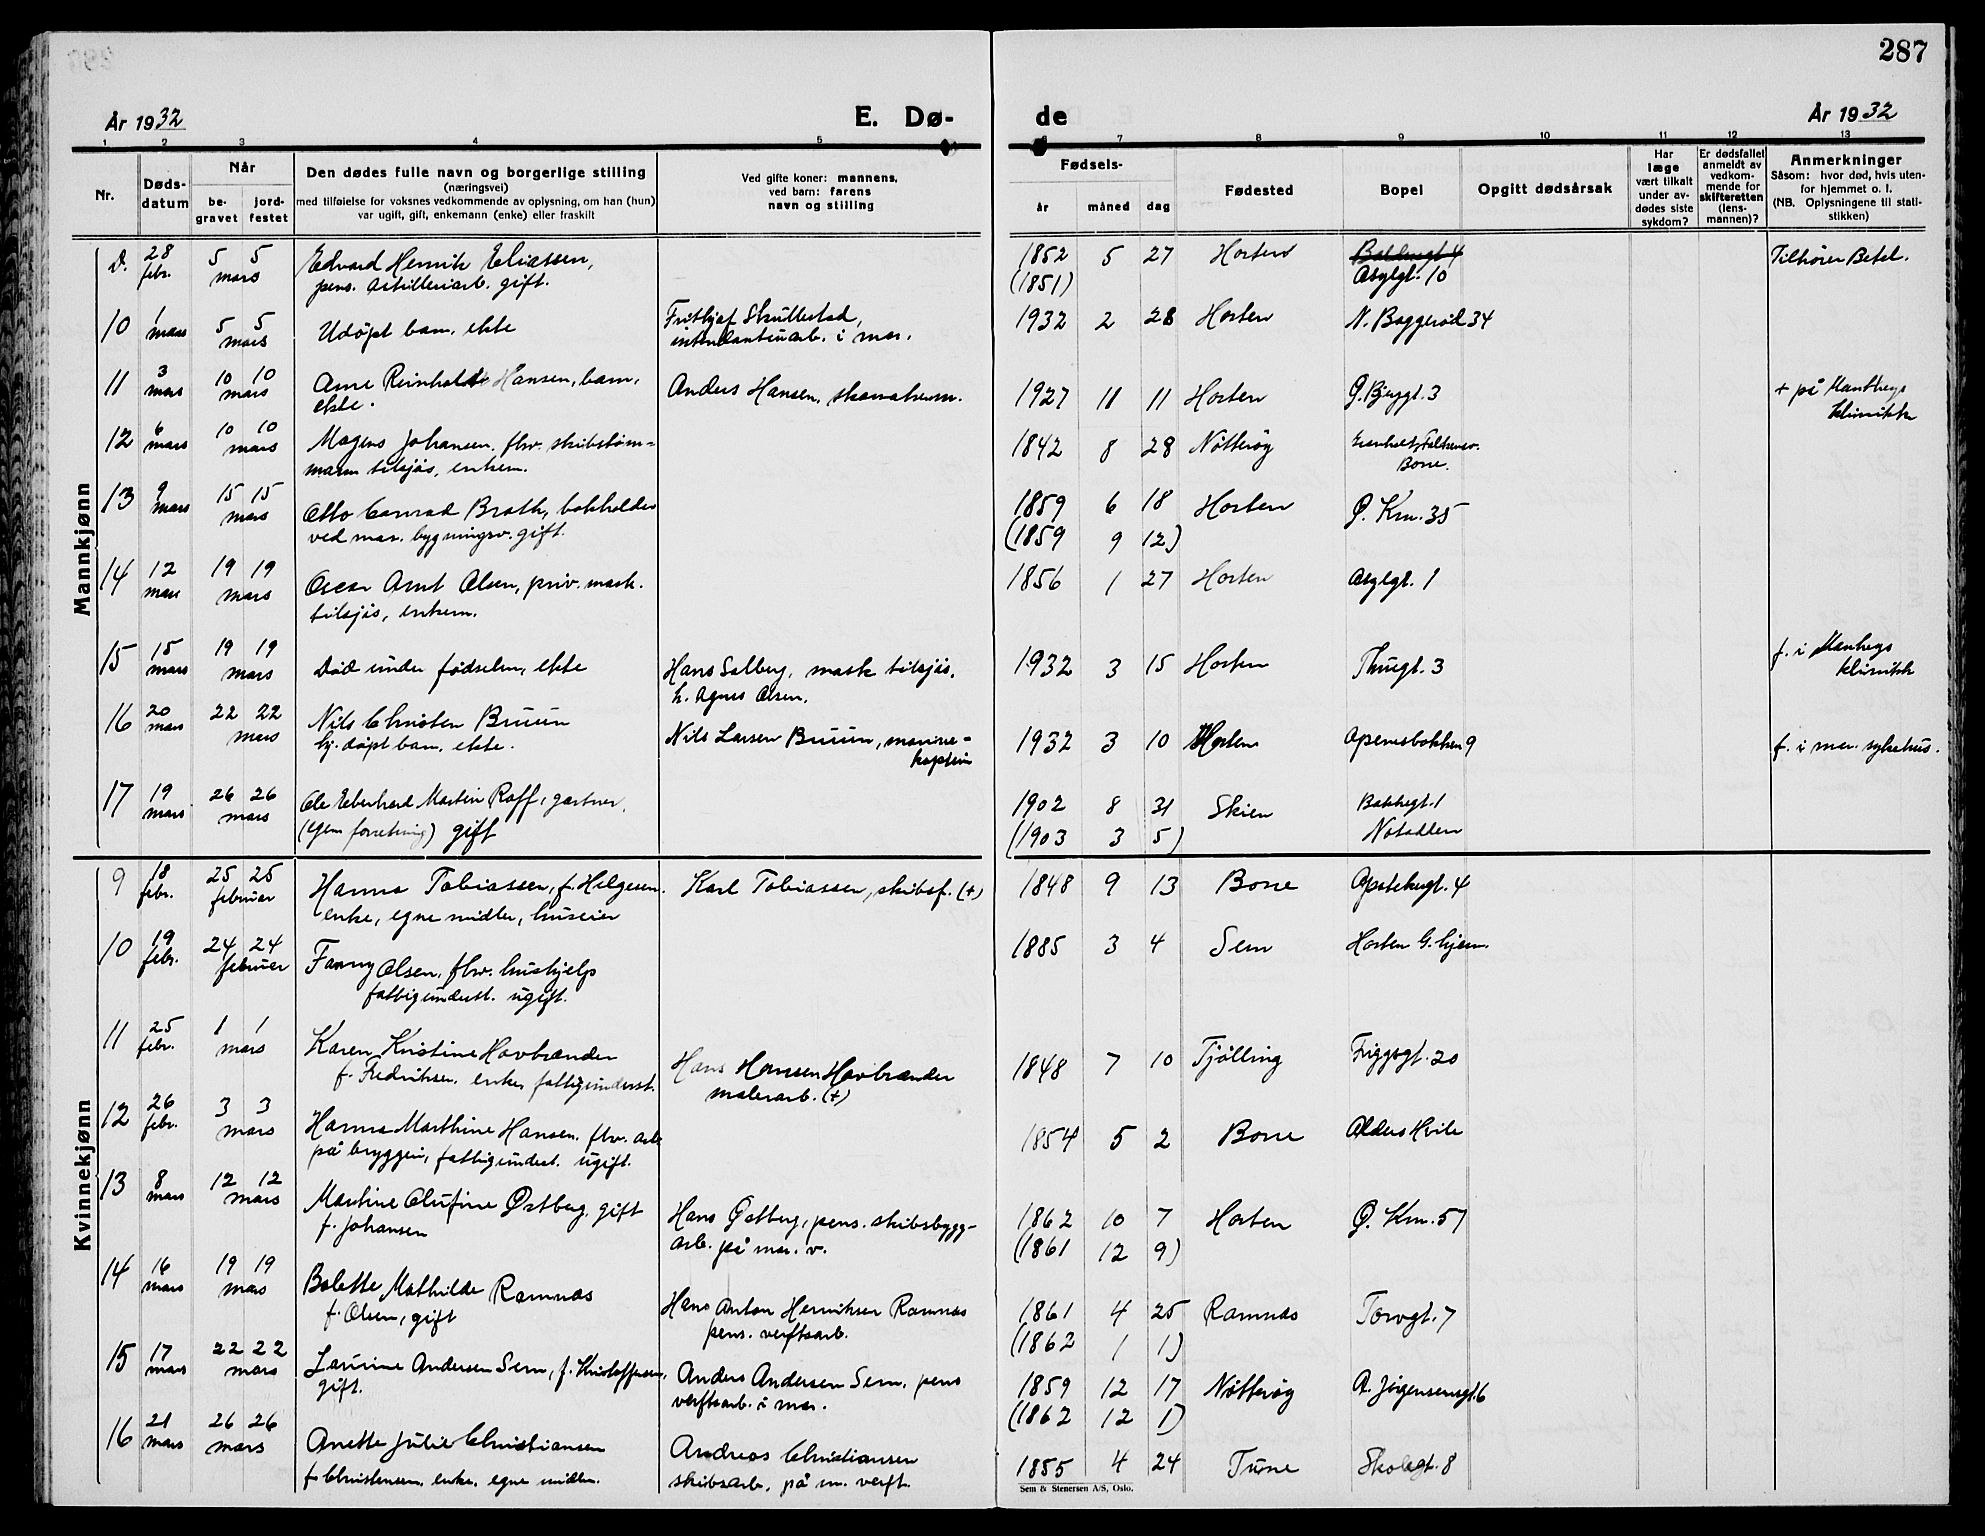 287
År 1932
E. Dø-
de
År 1932
1 2 3 4 5 6 7 8 9 10 11 12 13
Nr.
Døds-
datum
Når
be-
gravet
jord-
festet
Den dødes fulle navn og borgerlige stilling
(næringsvei)
med tilføielse for voksnes vedkommende av oplysning, om han (hun)
var ugift, gift, enkemann (enke) eller fraskilt
Ved gifte koner: mannens,
ved barn: farens
navn og stilling
Fødsels-
år måned dag
Fødested
Bopel
Opgitt dødsårsak
Har
læge
vært tilkalt
under av-
dødes siste
sykdom?
Er dødsfallet
anmeldt av
vedkom-
mende for
skifteretten
(lens-
mannen)?
Anmerkninger
Såsom: hvor død, hvis uten-
for hjemmet o. l.
(NB. Oplysningene til stati-
stikken)
Mannkjønn
28 5 5 Edvard Henrik Eliassen, 1852 5 27 Horten Tilhører Betel.
febr. mars pens. artilleriarb. gift. (1851) Asylgt. 10
10 1 5 5 Udøpt barn, ekte Fritjof Skullestad, 1932 2 28 Horten N. Baggerød 34
mars mars intendanturarb. i mar.
11 3 10 10 Arne Reinholdt Hansen, barn, Anders Hansen, skomakerm. 1927 11 11 Horten Ø. Bryggt. 3 + på Mantheys
mars mars ekte. klinikk
12 6 10 10 Magnus Johansen, fhv. skibstøm- 1842 8 28 Nøtterøy
mars mars mann tilsjøs, enkem. Borre.
13 9 15 15 Otto Conrad Brath, bokholder 1859 6 18 Horten Ø. Km. 35
mars mars ved mar. bygningsv. gift. (1859 9 12)
14 12 19 19 Oscar Arnt Olsen, priv. mask. 1856 1 27 Horten Asylgt. 1
mars mars tilsjøs, enkem.
15 15 19 19 Død under fødselen, ekte Hans Solberg, mask tilsjøs, 1932 3 15 Horten Thuegt. 3 f. i Mantheys
mars mars h. Agnes Olsen. klinikk
16 20 22 22 Nils Christen Bruun Nils Larsen Bruun, marine- 1932 3 10 Horten Apenesbakken 9 f. i mar. sykehus.
mars mars hj. døpt barn, ekte. kaptein
17 19 26 26 Ole Eberhard Martin Roff, gartner, 1902 8 31 Skien Bakkegt. 1
mars mars (egen forretning) gift (1903 3 5) Notodden
Kvinnekjønn
9 18 25 25 Hanna Tobiassen, f. Helgesen. Karl Tobiassen, skibsf. (+) 1848 9 13 Borre Apotekergt. 4
febr. februar enke, egne midler, huseier
10 19 24 24 Fanny Olsen, fhv. hushjelp 1885 3 4 Sem Horten G. hjem.
febr. februar fattigunderst. ugift.
11 25 1 1 Karen Kristine Havbrænder Hans Hansen Havbrænder 1848 7 10 Tjølling Friggsgt. 20
febr. mars f. Fredriksen, enke, fattigunderst. malerarb. (+)
12 26 3 3 Hanna Marthine Hansen, fhv. arb. 1854 5 2 Borre Alders Hvile
febr. mars på bryggeri, fattigunderst. ugift.
13 8 12 12 Martine Olufine Østberg, gift Hans Østberg, pens. skibsbygg- 1862 10 7 Horten Ø. Km. 57
mars mars f. Johansen arb. på mar. v. (1861 12 9)
14 16 19 19 Bolette Mathilde Ramnæs Hans Anton Henriksen Ramnæs 1861 4 25 Ramnæs Torvgt. 7
mars mars f. Olsen, gift pens. verftsarb. (1862 1 1)
15 17 22 22 Laurine Andersen Sem, f. Kristoffersen, Anders Andersen Sem, pens 1859 12 17 Nøtterøy A. Jørgensensgt. 6
mars mars gift. verftsarb. i mar. (1862 12 1)
16 21 26 26 Anette Julie Christiansen Andreas Christiansen 1855 4 24 Tune Skolegt. 8
mars mars f. Christensen, enke, egne midler. skibsarb. på m. verft.
Sem & Stenersen A/S, Oslo.